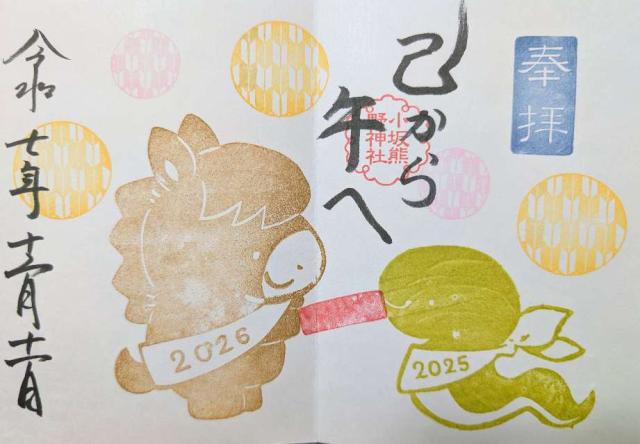 奉拝
巳から
午へ
小坂熊
野神社
令和七年十二月十一日
2026
2025